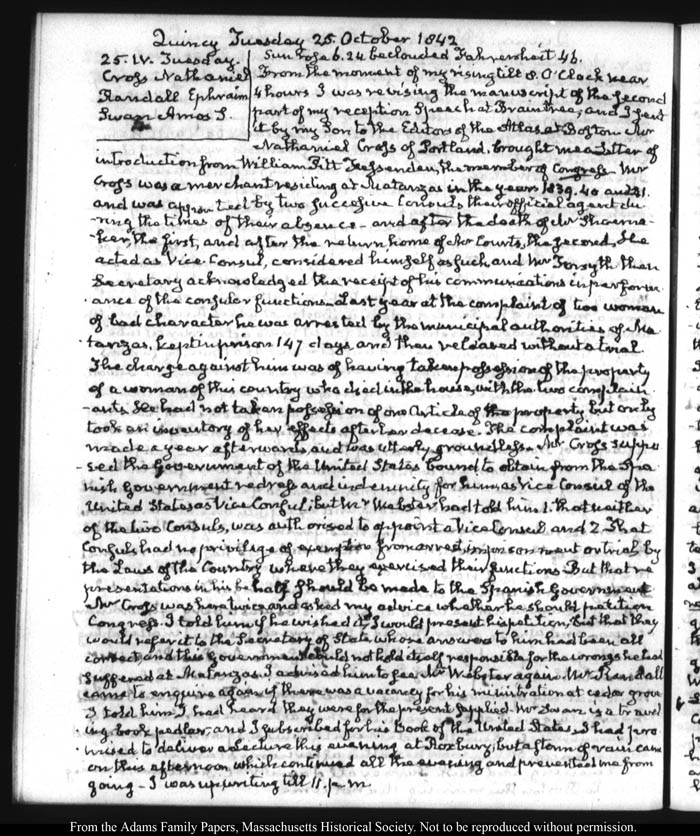 Quincy Tuesday 25. October 1842
25. IV. Tuesday.
Cross Nathaniel
Randall Ephraim
Swan Amos S.
Sun rose 6.24 beclouded Fahrenheit 46.
From the moment of my rising till 8. O'Clock near
4 hours I was revising the manuscript of the second
part of my reception Speech at Braintree, and I sent
it by my Son to the Editors of the Atlas at Boston Mr
Nathaniel Cross of Portland, brought me a Letter of
introduction from William Pitt Fessenden, the member of Congress Mr
Cross was a merchant residing at Matanzas in the years 1839. 40 and 41.
and was appointed by two successive Consuls their official agent du-
-ring the times of their absence - and after the death of Mr Shoema-
-ker, the first, and after the return home of Mr Courts, the second. He
acted as Vice-Consul, considered himself as such, and Mr Forsyth then
Secretary acknowledged the receipt of his communications in perform-
-ance of the consular functions - Last year at the complaint of two women
of bad character he was arrested by the municipal authorities of Ma-
-tanzas, kept in prison 147 days, and then released without a trial.
The charge against him was of having taken possession of the property
of a woman of this country who died in the house, with the two complain-
-ants. He had not taken possession of one article of the property but only
took an inventory of her effects after her decease. The complaint was
made a year afterwards and was utterly groundless. Mr Cross suppo-
-sed the Government of the United States bound to obtain from the Spa-
nish Government redress and indemnity for him as Vice Consul of the
United States as Vice Consul; but Mr Webster had told him 1. That neither
of the two Consuls, was authorised to appoint a Vice Consul and 2 That
Consuls had no privilege of exemption from arrest, imprisonment or trial by
the Laws of the Country where they exercised their functions But that re
presentations in his behalf should be made to the Spanish Government
Mr Cross was here twice and asked my advice whether he should petition
Congress. I told him if he wished it, I would present his petition, but that they
would refer it to the Secretary of State whose answer to him had been all
correct, and this Government could not hold itself responsible for the wrongs he had
suffered at Matanzas. I advised him to see Mr Webster again. Mr Randall
came to enquire again if there was a vacancy for his ministration at cedar grove
I told him I had heard they were for the present supplied. Mr Swan is a travel
ing book pedlar, and I subscribed for his Book of the United States. I had pro
-mised to deliver a lecture this evening at Roxbury, but a storm of rain came
on this afternoon which continued all the evening and prevented me from
going - I was up writing till 11. p.m.
From the Adams Family Papers, Massachusetts Historical Society. Not to be reproduced without permission.